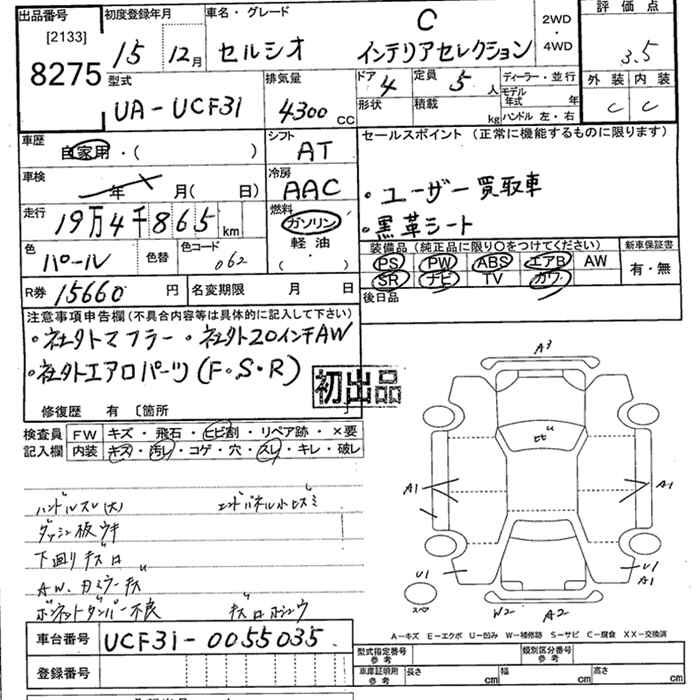 出品番号
[2133]
8275
初度登録年月
15 12月
車名・グレード
セルシオ C インテリアセレクション
2WD
・
4WD
評価点
3.5
外装 内装
C C
型式
UA-UCF31
排気量
4300 CC
ドア 4
定員 5 人
形状
積載 kg
ディーラー・並行
モデル年式 年
ハンドル 左・右
車歴
自家用・( )
シフト
AT
セールスポイント (正常に機能するものに限ります)
・ユーザー買取車
・黒革シート
車検
年 月( 日)
冷房
AAC
走行
19万4千865 km
燃料
ガソリン
軽油
( )
色
パール
色替
色コード
062
装備品 (純正品に限り○をつけてください)
PS PW ABS エアB AW
SR ナビ TV カワ
新車保証書
有・無
R券 15660 円
名変期限 月 日
後日品
注意事項申告欄(不具合内容等は具体的に記入して下さい)
・社外マフラー ・社外20インチAW
・社外エアロパーツ(F・S・R)
初出品
修復歴 有 [箇所 ]
検査員
記入欄
FW キズ・飛石・ヒビ割・リペア跡・×要
内装 キズ・汚レ・コゲ・穴・スレ・キレ・破レ
ハンドルスレ(大)
ダッシュ板ウキ
下回りキズ
ボンネットダンパー不良
A3
A1
A1
U1
U1
A1
スペア
W2
A2
A-キズ E-エクボ U-凹み W-補修跡 S-サビ C-腐食 XX-交換済
車台番号 UCF31-0055035
登録番号
型式指定番号
参考
類別区分番号
参考
車庫証明用
参考
長さ cm
幅 cm
高さ cm